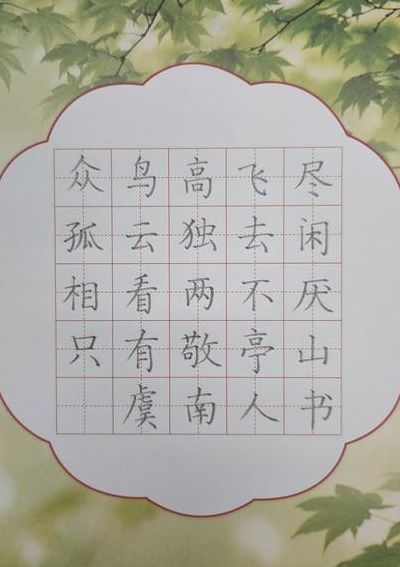 众鸟高飞尽
孤云独去闲
相看两不厌
只有敬亭山
虞南人书